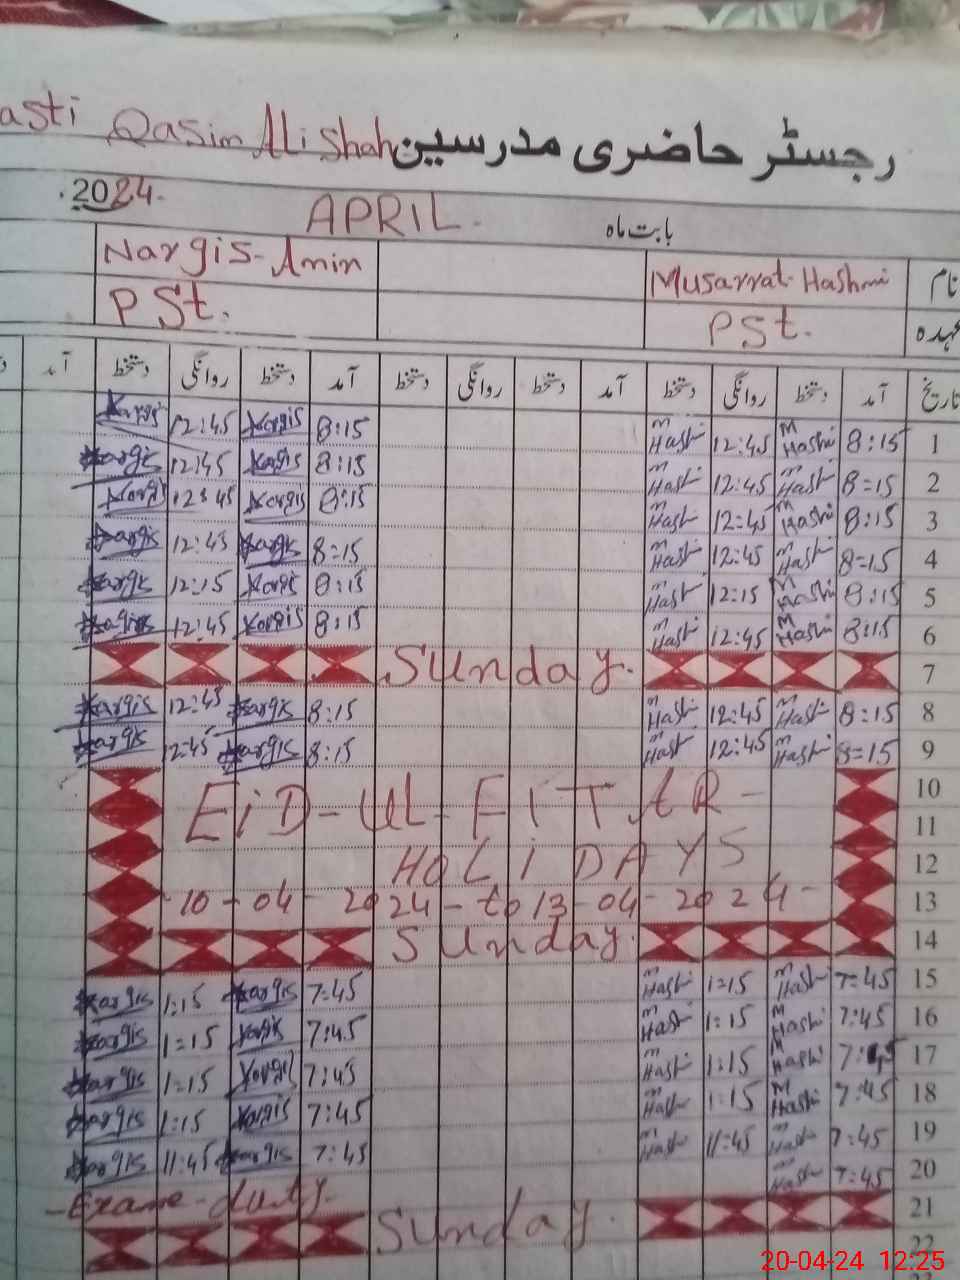 asti Qasim Ali Shah رجسٹر حاضری مدرسین
2024. APRIL. بابت ماہ
Nargis-Amin Musarrat-Hashmi نام
PSt. PSt. عہدہ
آمد دستخط روانگی دستخط آمد دستخط روانگی دستخط آمد دستخط روانگی دستخط آمد تاریخ
Nargis 12:45 Nargis 8:15 M Hashi 12:45 M Hashi 8:15 1
Nargis 12:45 Nargis 8:15 M Hashi 12:45 M Hashi 8=15 2
Nargis 12:45 Nargis 8:15 M Hashi 12=45 M Hashi 8:15 3
Nargis 12:45 Nargis 8=15 M Hashi 12:45 M Hashi 8=15 4
Nargis 12:15 Nargis 8:15 M Hashi 12:15 M Hashi 8:15 5
Nargis 12:45 Nargis 8:15 M Hashi 12:45 M Hashi 8:15 6
Sunday. 7
Nargis 12:45 Nargis 8:15 M Hashi 12:45 M Hashi 8:15 8
Nargis 12:45 Nargis 8:15 M Hashi 12:45 M Hashi 8=15 9
10
EiD-Ul-FITAR- 11
HOLIDAYS 12
10-04-2024-to 13-04-2024- 13
Sunday. 14
Nargis 1:15 Nargis 7=45 M Hashi 1=15 M Hashi 7=45 15
Nargis 1=15 Nargis 7:45 M Hashi 1:15 M Hashi 7:45 16
Nargis 1:15 Nargis 7:45 M Hashi 1:15 M Hashi 7:45 17
Nargis 1:15 Nargis 7:45 M Hashi 1:15 M Hashi 7:45 18
Nargis 11:45 Nargis 7:45 M Hashi 11=45 M Hashi 7:45 19
-Exam-duty. M Hashi 7:45 20
Sunday. 21
22
20-04-24 12:25